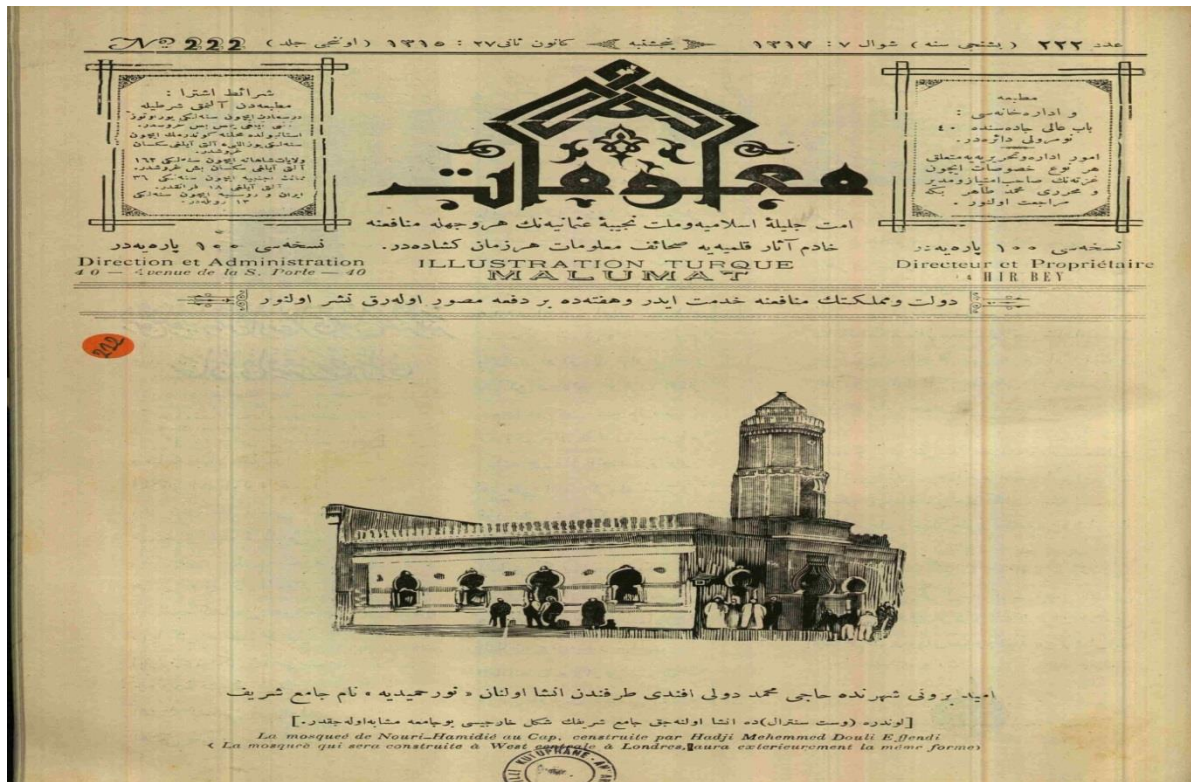 عدد ٢٢٢ ( بشنجی سنه ) شوال ٧ : ١٣١٧ پنجشنبه کانون ثانی ٢٧ : ١٣١٥ ( اوننجی جلد ) Nº 222
مطبعه
و اداره خانه سی :
باب عالی جاده سنده ٤٠
نومرولی دائره در.
امور اداره و تحریریه یه متعلق
هر نوع خصوصات ایچون
غزته نك صاحب امتیاز و مدیر
و محرری محمد طاهر بکه
مراجعت اولنور .
نسخه سی ١٠٠ پاره یه در
Directeur et Propriétaire
HIR BEY
معلومات
امت جلیلۀ اسلامیه و ملت نجیبۀ عثمانیه نك هر وجهله منافعنه
خادم آثار قلمیه یه صحائف معلومات هر زمان کشاده در.
ILLUSTRATION TURQUE
MALUMAT
شرائط اشترا :
مطبعه دن آلنمق شرطیله
ایران و روسیه ایچون سنه لکی
نسخه سی ١٠٠ پاره یه در
Direction et Administration
40 — Avenue de la S. Porte — 40
دولت و مملکتك منافعنه خدمت ایدر و هفته ده بر دفعه مصور اوله رق نشر اولنور
222
امید برونی شهرنده حاجی محمد دولی افندی طرفندن انشا اولنان « نور حمیدیه » نام جامع شریف
[لوندره (وست سنترال)ده انشا اولنه جق جامع شریفك شکل خارجیسی بو جامعه مشابه اوله جقدر.]
La mosqueé de Nouri-Hamidié au Cap, censtruite par Hadji Mehemmed Douli Effendi
( La mosqueé qui sera construite à West centrale à Londres, aura exterieurement la même forme)
KUTUPHANE